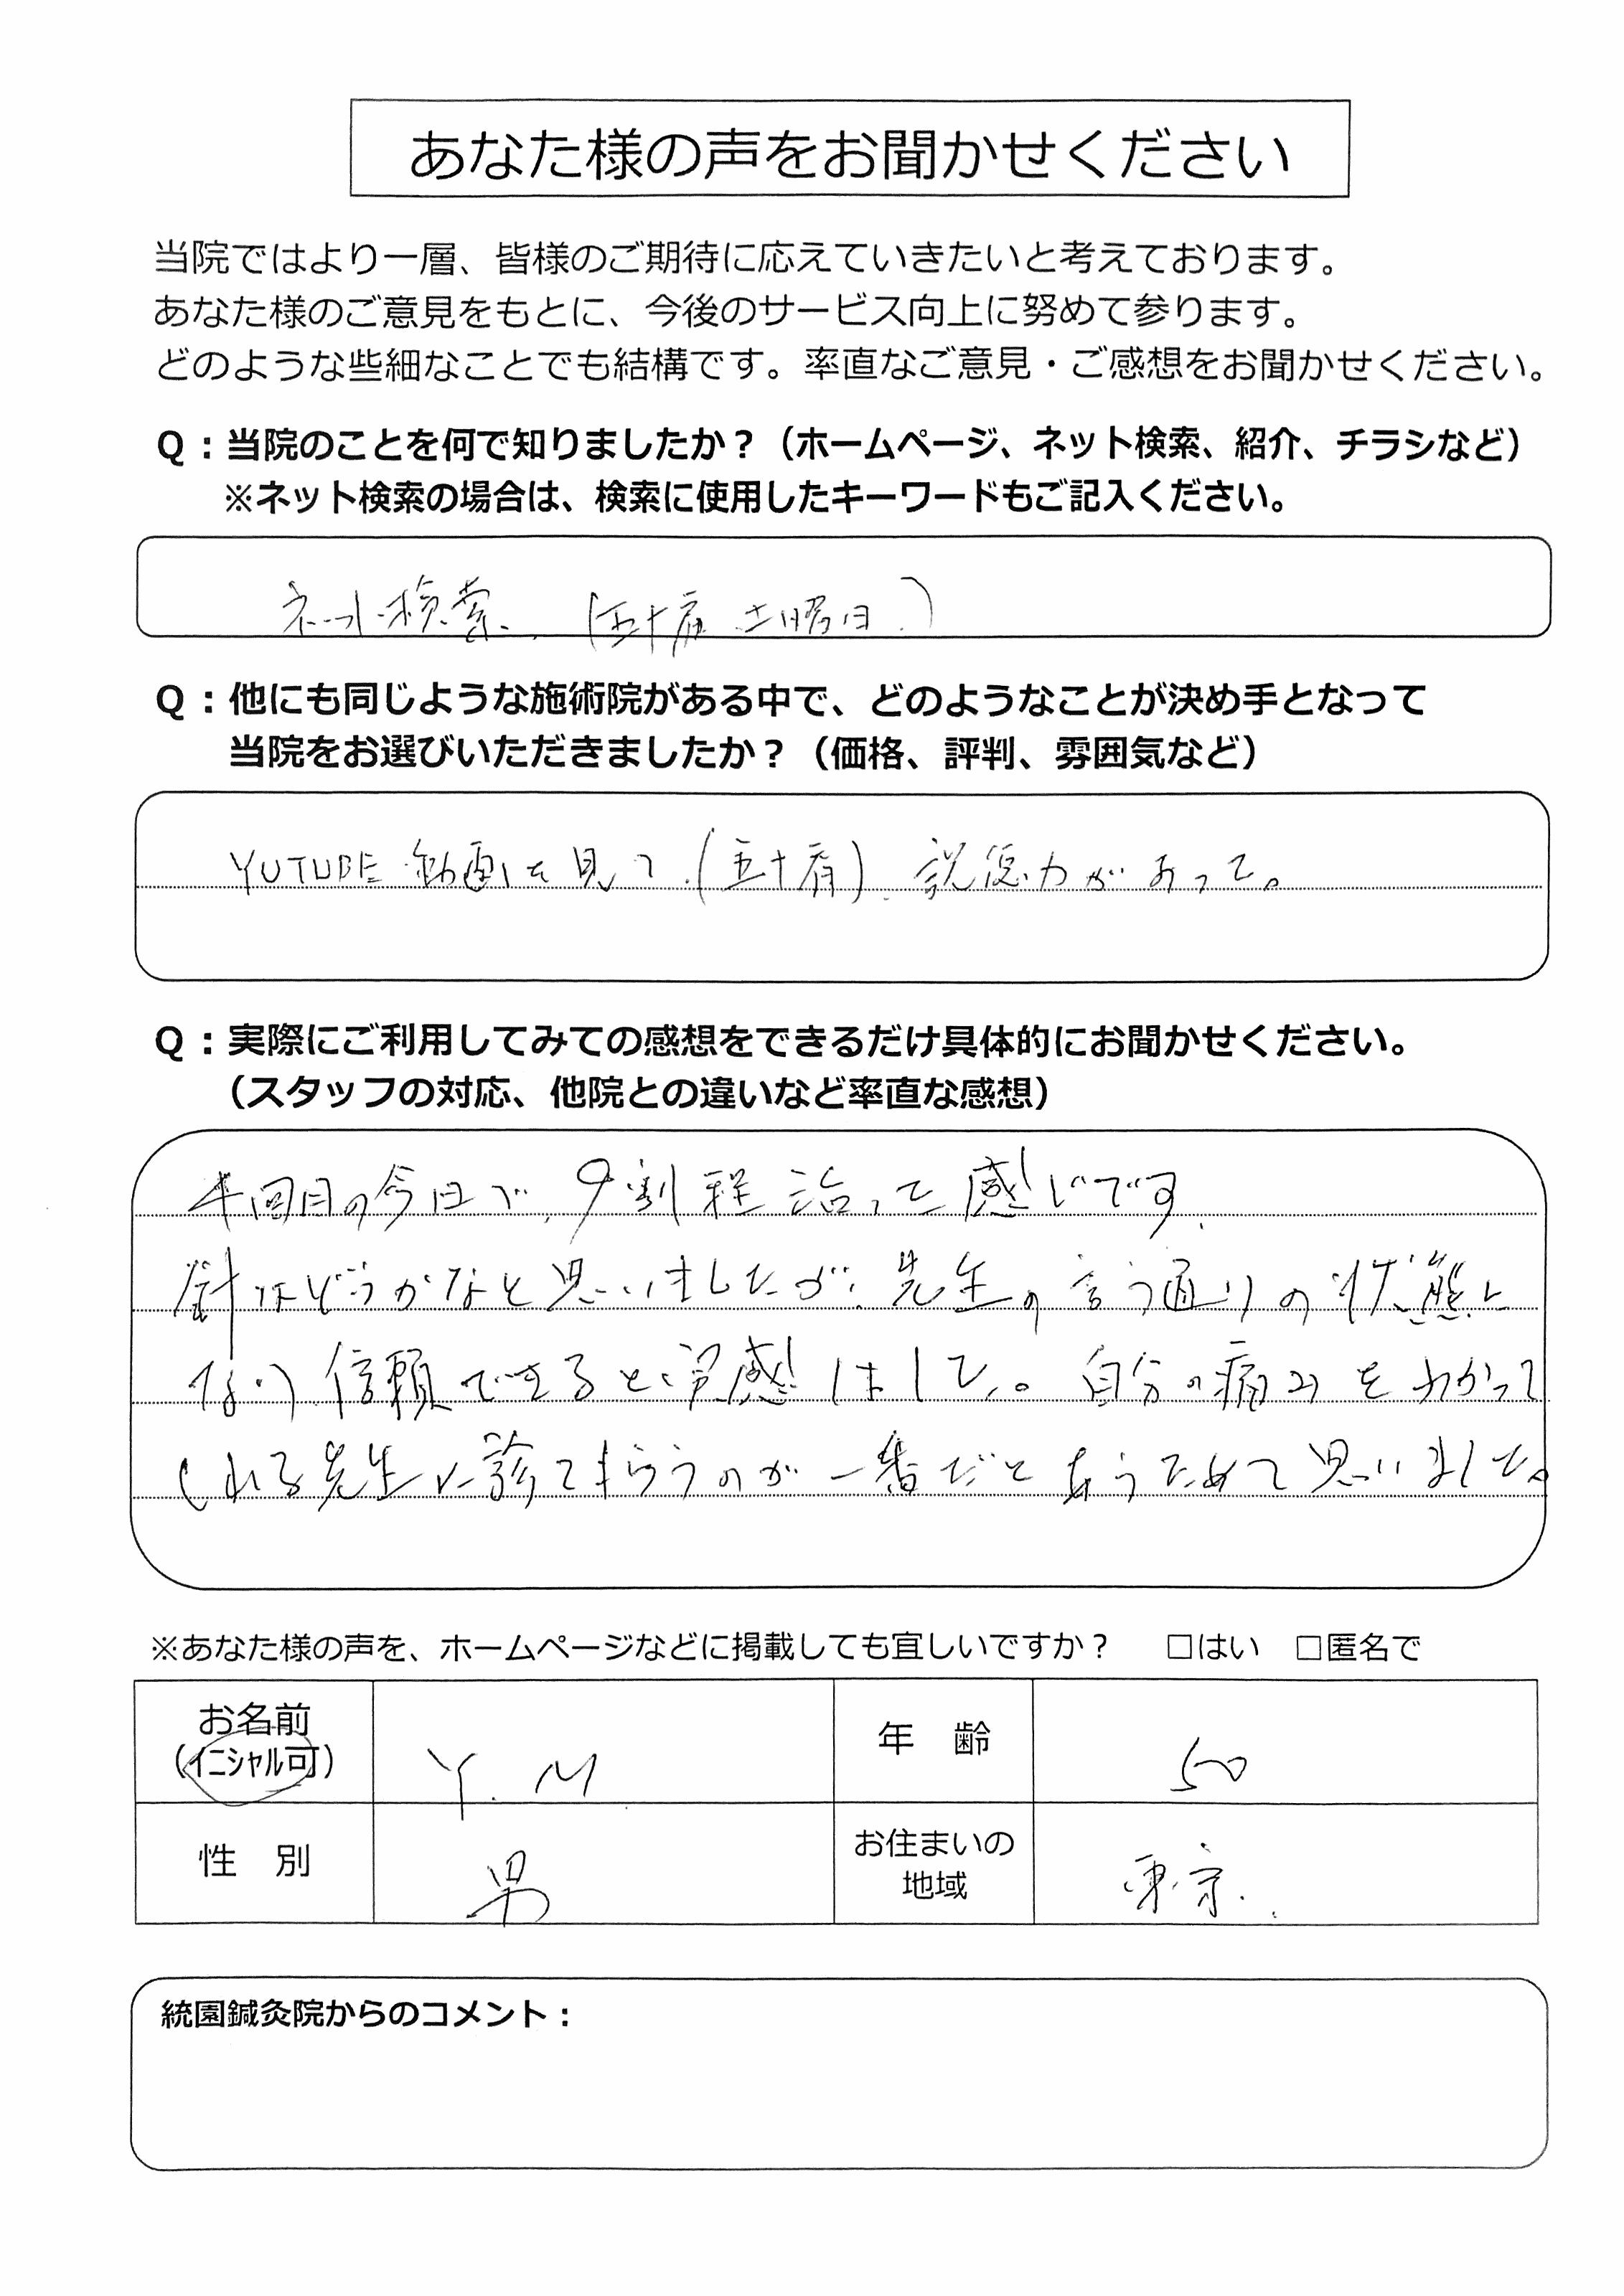 あなた様の声をお聞かせください
当院ではより一層、皆様のご期待に応えていきたいと考えております。
あなた様のご意見をもとに、今後のサービス向上に努めて参ります。
どのような些細なことでも結構です。率直なご意見・ご感想をお聞かせください。
Q：当院のことを何で知りましたか？（ホームページ、ネット検索、紹介、チラシなど）
※ネット検索の場合は、検索に使用したキーワードもご記入ください。
ネット検索、（五十肩 土曜日）
Q：他にも同じような施術院がある中で、どのようなことが決め手となって
当院をお選びいただきましたか？（価格、評判、雰囲気など）
YUTUBE動画を見て（五十肩）説得力があって。
Q：実際にご利用してみての感想をできるだけ具体的にお聞かせください。
（スタッフの対応、他院との違いなど率直な感想）
4回目の今日で、9割程治った感じです。
針はどうかなと思いましたが、先生の言う通りの状態に
なり信頼できると実感しました。自分の痛みをわかって
くれる先生に診てもらうのが一番だとあらためて思いました。
※あなた様の声を、ホームページなどに掲載しても宜しいですか？ □はい □匿名で
お名前 Y.M 年 齢 50
（イニシャル可）
性 別 男 お住まいの地域 東京.
統園鍼灸院からのコメント：